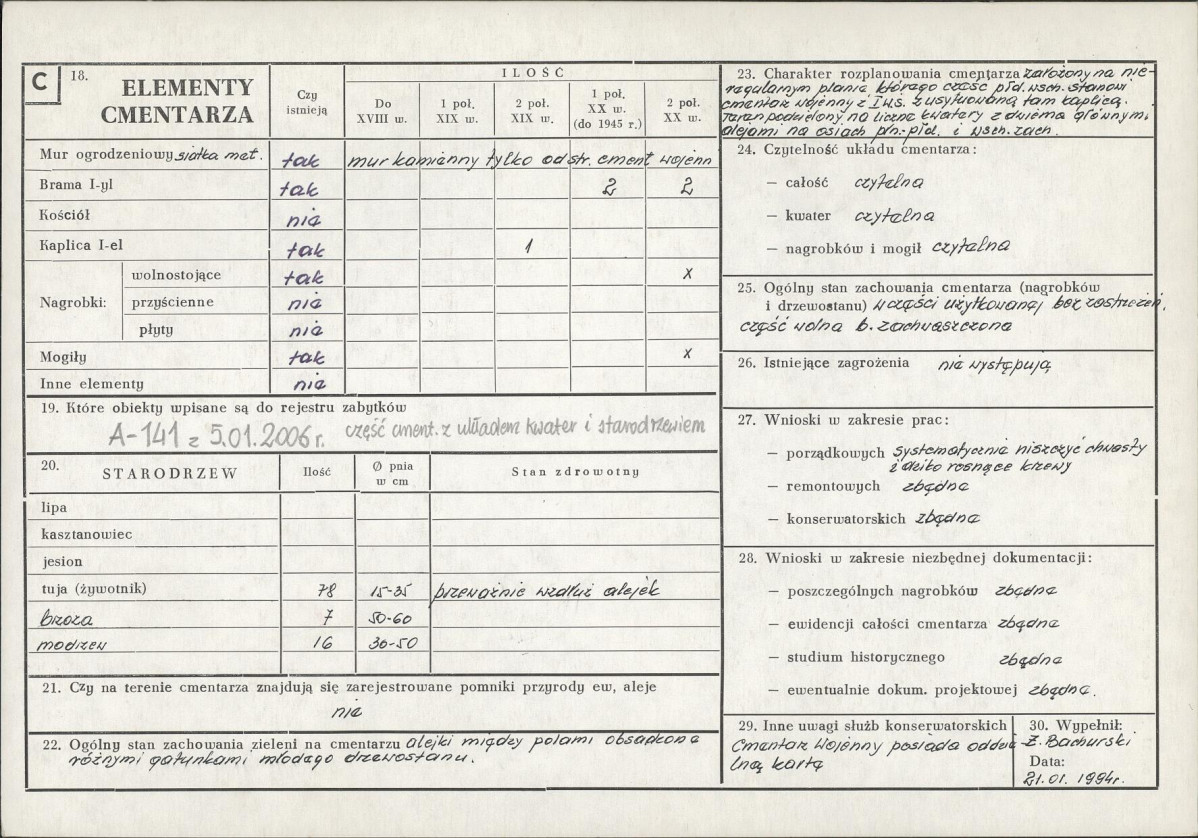 C
18. ELEMENTY CMENTARZA
Czy istnieją
ILOŚĆ
Do XVIII w.
1 poł. XIX w.
2 poł. XIX w.
1 poł. XX w. (do 1945 r.)
2 poł. XX w.
Mur ogrodzeniowy siatka met. tak mur kamienny tylko od str. cment wojenn
Brama I-yl tak 2 2
Kościół nie
Kaplica I-el tak 1
Nagrobki:
wolnostojące tak x
przyścienne nie
płyty nie
Mogiły tak x
Inne elementy nie
19. Które obiekty wpisane są do rejestru zabytków
A-141 z 5.01.2006 r. część cment. z układem kwater i starodrzewiem
20. STARODRZEW
Ilość
Ø pnia w cm
Stan zdrowotny
lipa
kasztanowiec
jesion
tuja (żywotnik) 78 15-35 przeważnie wzdłuż alejek
brzoza 7 50-60
modrzew 16 30-50
21. Czy na terenie cmentarza znajdują się zarejestrowane pomniki przyrody ew, aleje
nie
22. Ogólny stan zachowania zieleni na cmentarzu alejki między polami obsadzone
różnymi gatunkami młodego drzewostanu.
23. Charakter rozplanowania cmentarza założony na nie-
regularnym planie którego część płd. wsch. stanowi
cmentarz wojenny z I w.ś. z usytuowaną tam kaplicą.
Teren podzielony na liczne kwatery z dwiema głównymi
alejami na osiach płn.-płd. i wsch. zach.
24. Czytelność układu cmentarza:
– całość czytelna
– kwater czytelna
– nagrobków i mogił czytelna
25. Ogólny stan zachowania cmentarza (nagrobków
i drzewostanu) w części użytkowanej bez zastrzeżeń,
część wolna b. zachwaszczona
26. Istniejące zagrożenia nie występują
27. Wnioski w zakresie prac:
– porządkowych systematycznie niszczyć chwasty
i dziko rosnące krzewy
– remontowych zbędne
– konserwatorskich zbędne
28. Wnioski w zakresie niezbędnej dokumentacji:
– poszczególnych nagrobków zbędne
– ewidencji całości cmentarza zbędne
– studium historycznego zbędne
– ewentualnie dokum. projektowej zbędne.
29. Inne uwagi służb konserwatorskich
Cmentarz wojenny posiada oddzie
lną kartę
30. Wypełnił:
Z. Bachurski
Data:
21.01.1994r.